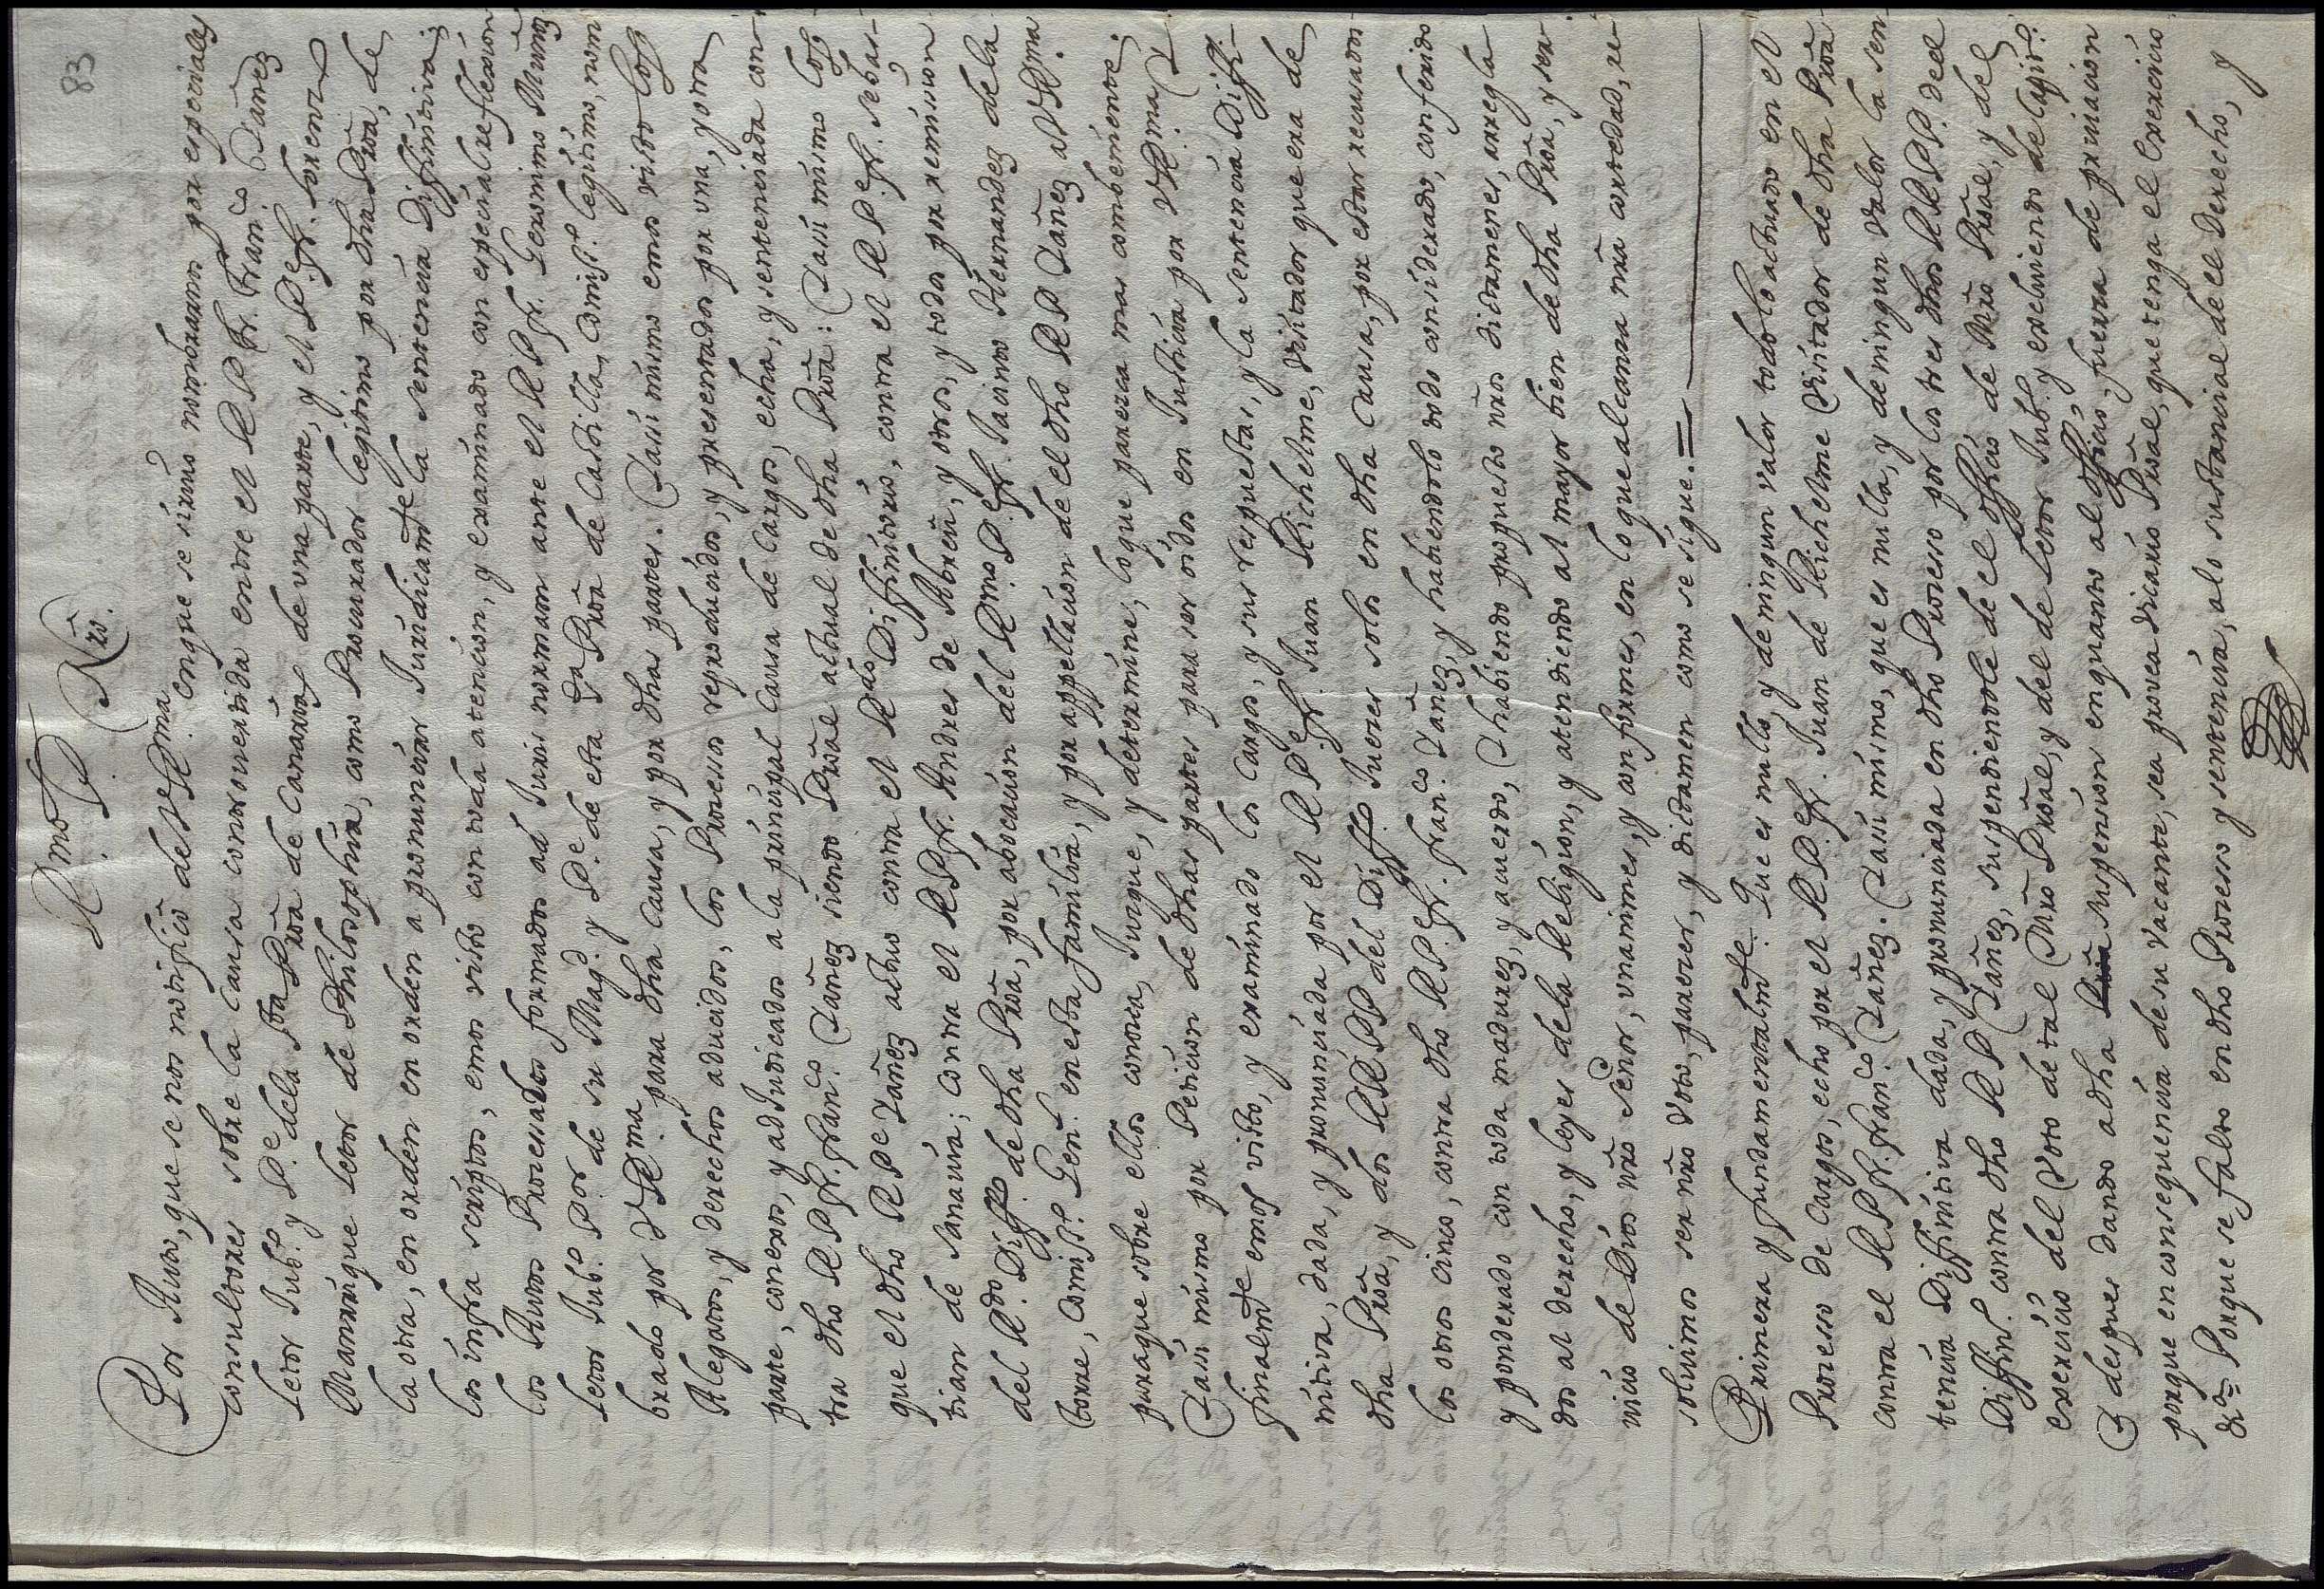 83
R.mo P. Nro.
Por Auto, que se nos notificò de V. R.ma en que se sirviò nombrarnos por especiales
consultores sobre la causa controvertida entre el R P. Fr. Fran.co Yañez
Letor Jub.o y P.e dela S.ta Proã de Canarias de una parte, y el P.e Fr. Lorenzo
Manrrique Letor de Philosophia, como Procurador legitimo por dha Proã, de
la otra, en orden en orden a pronunciar Juridicam.te la sentencia Diffinitiva;
los infra scriptos, emos visto con toda atencion, y examinado con especial reflexion
los Autos Processados formados ad Juris normam ante el R P Fr. Geronimo Muñoz
Letor Jub.o P.or de su Mag.d y P.e de esta S.ta Proã de Castilla, Comiss.o legitimo, nom
brado por V. R.ma para dha causa, y por dhas partes. Y assi mismo emos visto los
Alegatos, y derechos aducidos, los Processos reproducidos, y presentados por una, y otra
parte, conexos, y adJudicados a la principal causa de Cargos, echa, y sentenciada con-
tra dho R P Fr. Fran.co Yañez siendo Proãl actual de dha Proã: Y assi mismo los
que el dho R P.e Yañez actuò contra el R.do Diffinitorio, contra el R P.e Fr. Sebas-
tian de Sanabria; contra el R P Fr. Andres de Abreu, y otros, y todos por remission
del R.do Diff.o de dha Proã, por abocacion del R.mo P.e Fr. Jacinto Hernandez dela
torre, Comiss.o Gen.l en esta familia, y por appellacion de el dho R P Yañez a V R.ma
para que sobre ellos conozca, Juzgue, y determine, lo que parezca mas combeniente.
Y assi mismo por Peticion de dhas partes para ser oidos en Justicia por V R.ma Y
finalm.te emos visto, y examinado los Cargos, y sus respuestas, y la sentencia Diffi-
nitiva, dada, y pronunciada por el R P.e Fr. Juan Richelme, Visitador que era de
dha Proã, y dos RR PP del Diff.o Jueces solos en dha causa, por estar recusados
los otros cinco, contra dho R P.e Fr. Fran.co Yañez, y habiendolo todo considerado, conferido
y ponderado con toda madurez, y acuerdo, Y habiendo propuesto nños dictamenes, arregla
dos al derecho, y leyes dela Religion, y atendiendo al mayor bien de dha Proã, y ser-
vicio de Dios nro Señor, unanimes, y conformes, en lo que alcanza nña cortedad, re-
solvimos ser nño voto, parecer, y dictamen como se sigue.=
Primera y fundamentalm.te Que es nullo, y de ningun valor todo lo actuado en el
Processo de Cargos, echo por el R P.e Fr. Juan de Richelme Visitador de dha Proã
contra el R P Fr. Fran.co Yañez. Y assi mismo, que es nulla, y de ningun valor la sen
tencia Diffinitiva dada, y pronunciada en dho Processo por los tres dhos RR PP. de el
Diffin.o contra dho R P Yañez, suspendiendole de el officio de Mrõ Proãl, y del
exercicio del Voto de tal Mrõ Proãl, y del de Letor Jub.o y
Y despues dando a dha suspension en quanto al officio, fuerza de privacion
porque en consequencia de su vacante, sea provea Vicario Proãl, que tenga el Exercicio
&a= Porque se falto en dho Processo y sentencia, a lo substancial de el Derecho, y